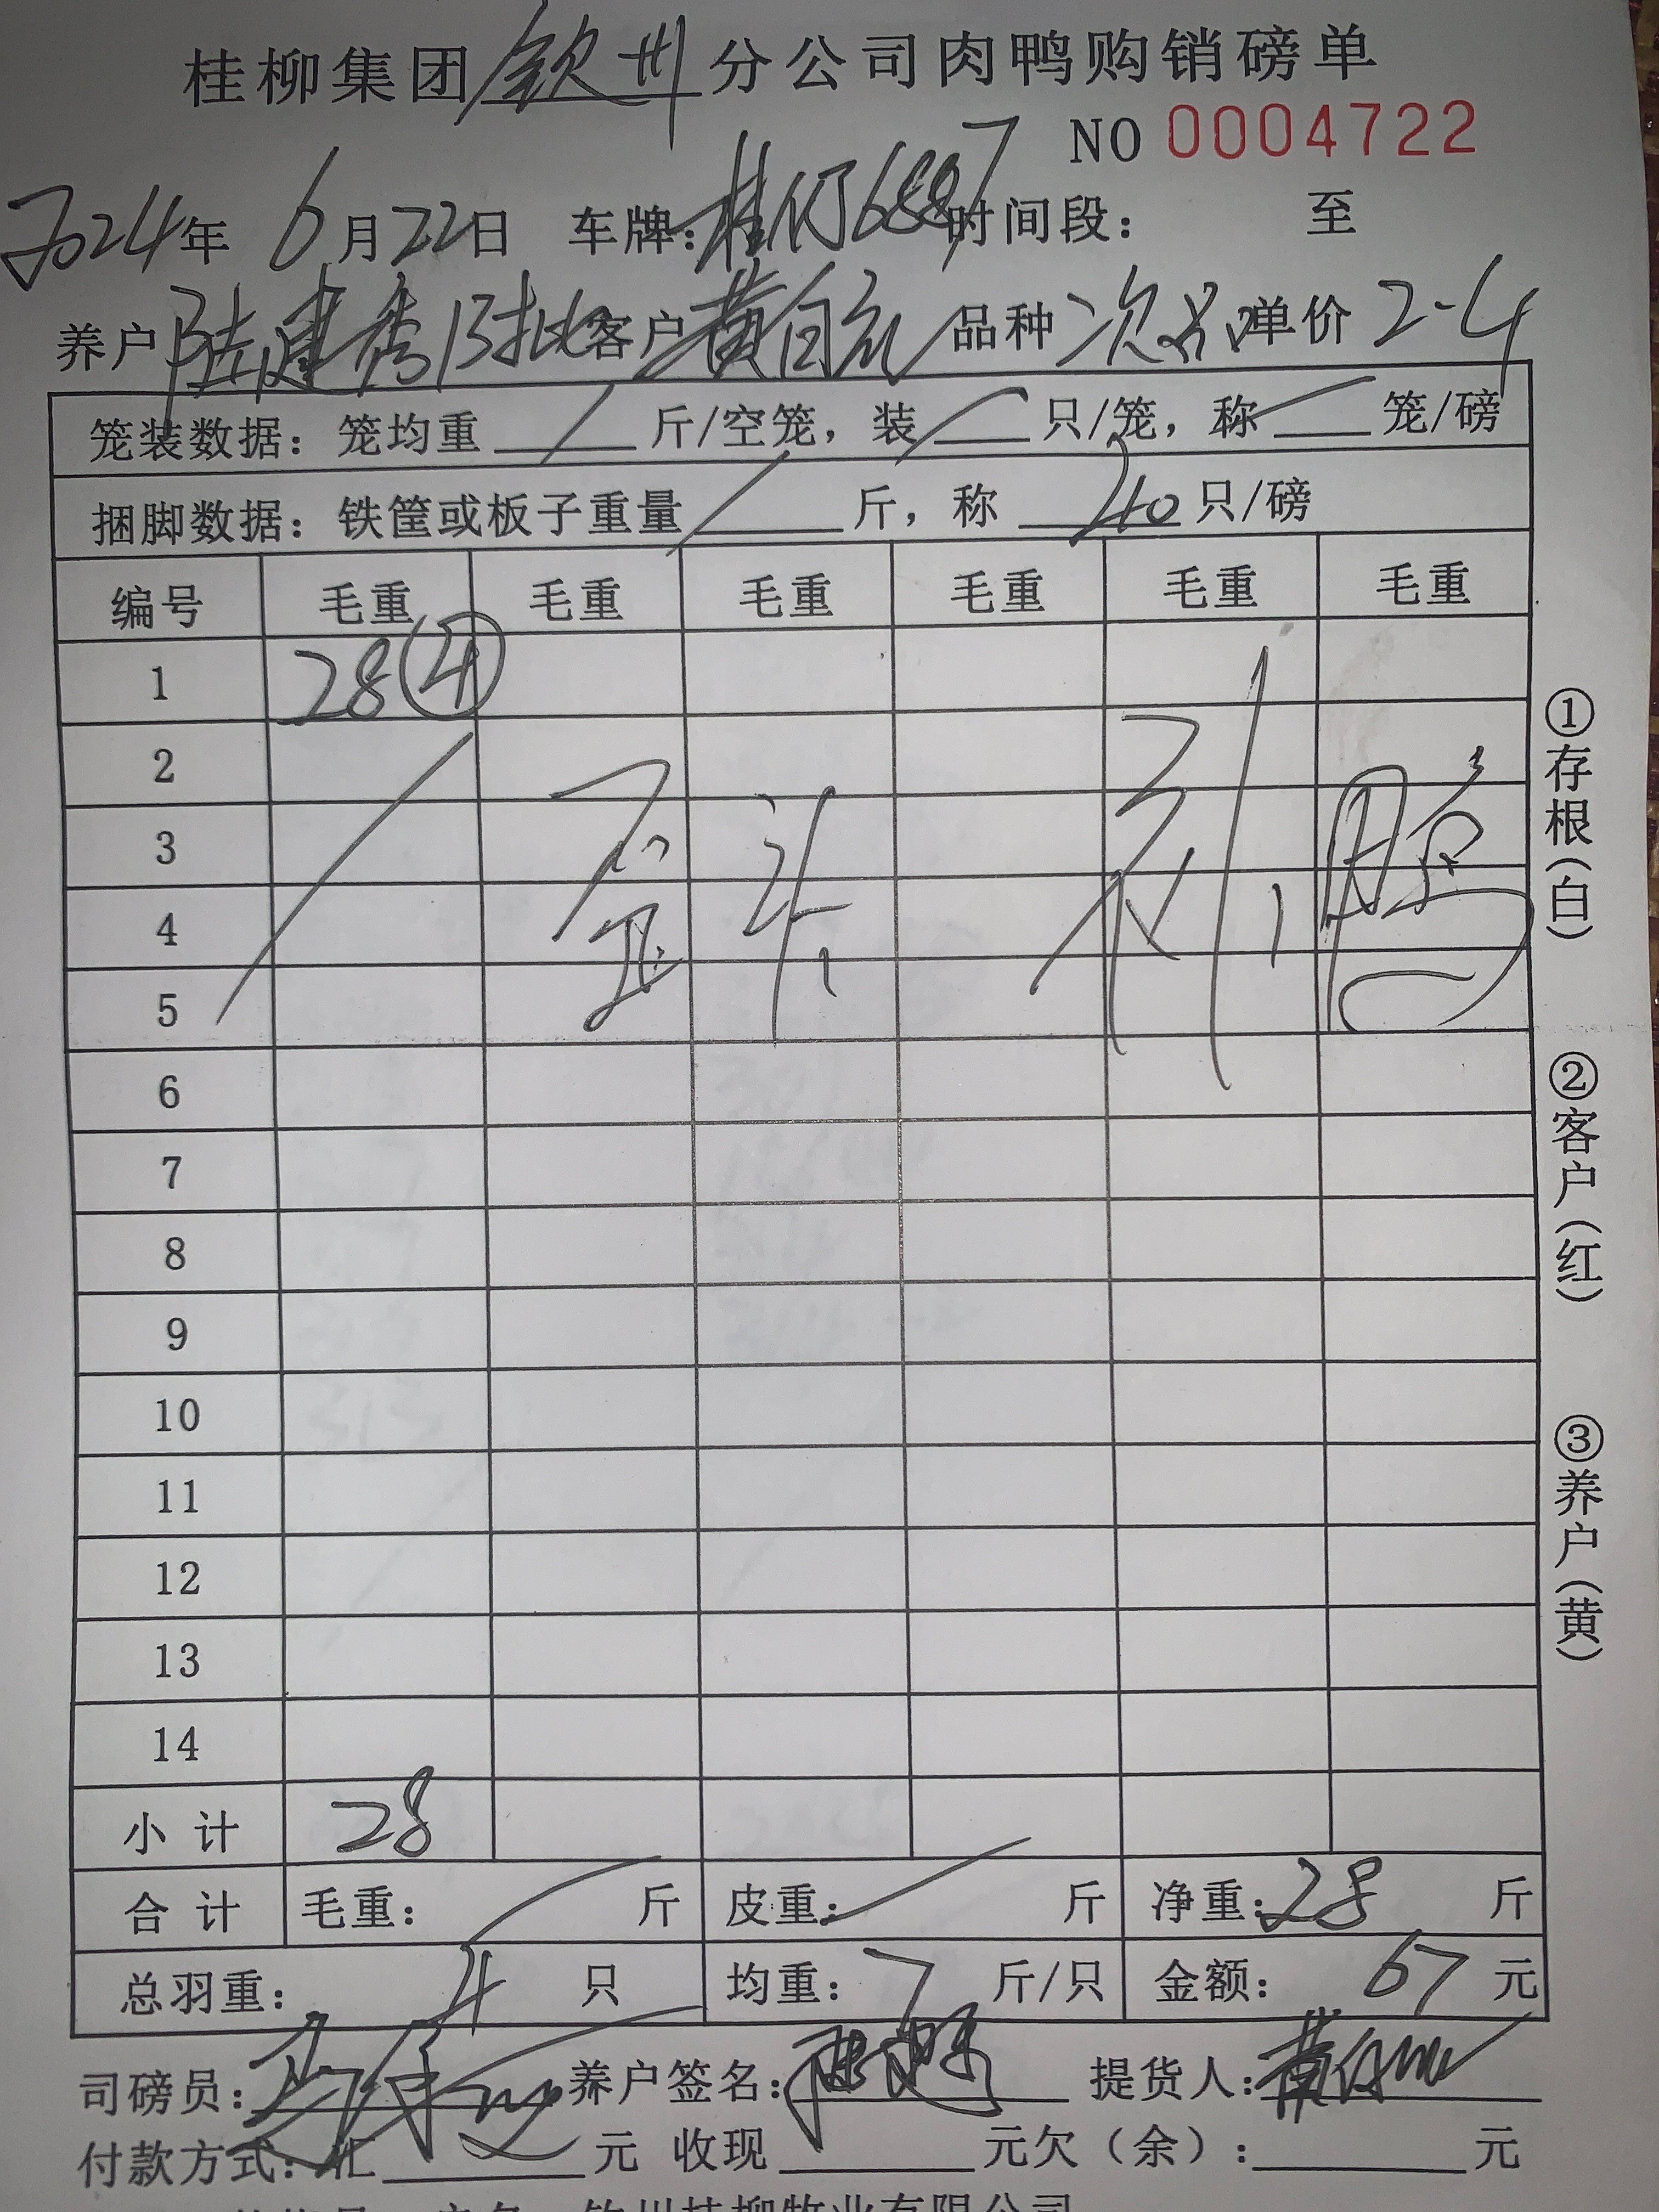 桂柳集团 钦州 分公司肉鸭购销磅单
NO 0004722
2024年 6月22日 车牌: 时间段: 至
养户 陆建秀13批 客户 黄自 品种 次品 单价 2-4
笼装数据: 笼均重 / 斤/空笼, 装 / 只/笼, 称 / 笼/磅
捆脚数据: 铁筐或板子重量 / 斤, 称 只/磅
编号 毛重 毛重 毛重 毛重 毛重 毛重
1 28④
2
3
4
5
6
7
8
9
10
11
12
13
14
小计 28
合计 毛重: / 斤 皮重: / 斤 净重: 28 斤
总羽重: 4 只 均重: 7 斤/只 金额: 67 元
司磅员: 养户签名: 提货人:
付款方式: 汇 元 收现 元欠(余): 元
钦州桂柳牧业有限公司
①存根(白)
②客户(红)
③养户(黄)